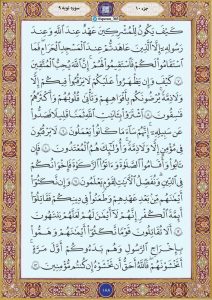 جزء ١٠ سوره توبه ٩
كَيْفَ يَكُونُ لِلْمُشْرِكِينَ عَهْدٌ عِندَ ٱللَّهِ وَعِندَ
رَسُولِهِۦٓ إِلَّا ٱلَّذِينَ عَٰهَدتُّمْ عِندَ ٱلْمَسْجِدِ ٱلْحَرَامِ فَمَا
ٱسْتَقَٰمُوا۟ لَكُمْ فَٱسْتَقِيمُوا۟ لَهُمْ إِنَّ ٱللَّهَ يُحِبُّ ٱلْمُتَّقِينَ ٧
كَيْفَ وَإِن يَظْهَرُوا۟ عَلَيْكُمْ لَا يَرْقُبُوا۟ فِيكُمْ إِلًّا
وَلَا ذِمَّةً يُرْضُونَكُم بِأَفْوَٰهِهِمْ وَتَأْبَىٰ قُلُوبُهُمْ وَأَكْثَرُهُمْ
فَٰسِقُونَ ٨ ٱشْتَرَوْا۟ بِـَٔايَٰتِ ٱللَّهِ ثَمَنًا قَلِيلًا فَصَدُّوا۟
عَن سَبِيلِهِۦٓ إِنَّهُمْ سَآءَ مَا كَانُوا۟ يَعْمَلُونَ ٩ لَا يَرْقُبُونَ
فِى مُؤْمِنٍ إِلًّا وَلَا ذِمَّةً وَأُو۟لَٰٓئِكَ هُمُ ٱلْمُعْتَدُونَ ١٠
فَإِن تَابُوا۟ وَأَقَامُوا۟ ٱلصَّلَوٰةَ وَءَاتَوُا۟ ٱلزَّكَوٰةَ فَإِخْوَٰنُكُمْ
فِى ٱلدِّينِ وَنُفَصِّلُ ٱلْـَٔايَٰتِ لِقَوْمٍ يَعْلَمُونَ ١١ وَإِن نَّكَثُوٓا۟
أَيْمَٰنَهُم مِّنۢ بَعْدِ عَهْدِهِمْ وَطَعَنُوا۟ فِى دِينِكُمْ فَقَٰتِلُوٓا۟
أَئِمَّةَ ٱلْكُفْرِ إِنَّهُمْ لَآ أَيْمَٰنَ لَهُمْ لَعَلَّهُمْ يَنتَهُونَ
١٢ أَلَا تُقَٰتِلُونَ قَوْمًا نَّكَثُوٓا۟ أَيْمَٰنَهُمْ وَهَمُّوا۟
بِإِخْرَاجِ ٱلرَّسُولِ وَهُم بَدَءُوكُمْ أَوَّلَ مَرَّةٍ
أَتَخْشَوْنَهُمْ فَٱللَّهُ أَحَقُّ أَن تَخْشَوْهُ إِن كُنتُم مُّؤْمِنِينَ ١٣
١٨٨